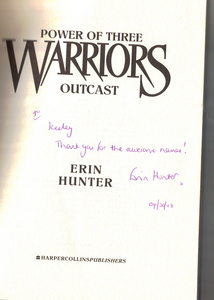 POWER OF THREE
WARRIORS
OUTCAST
To
Keeley
Thank you for the awesome names!
ERIN
HUNTER
Erin Hunter
HARPERCOLLINSPUBLISHERS